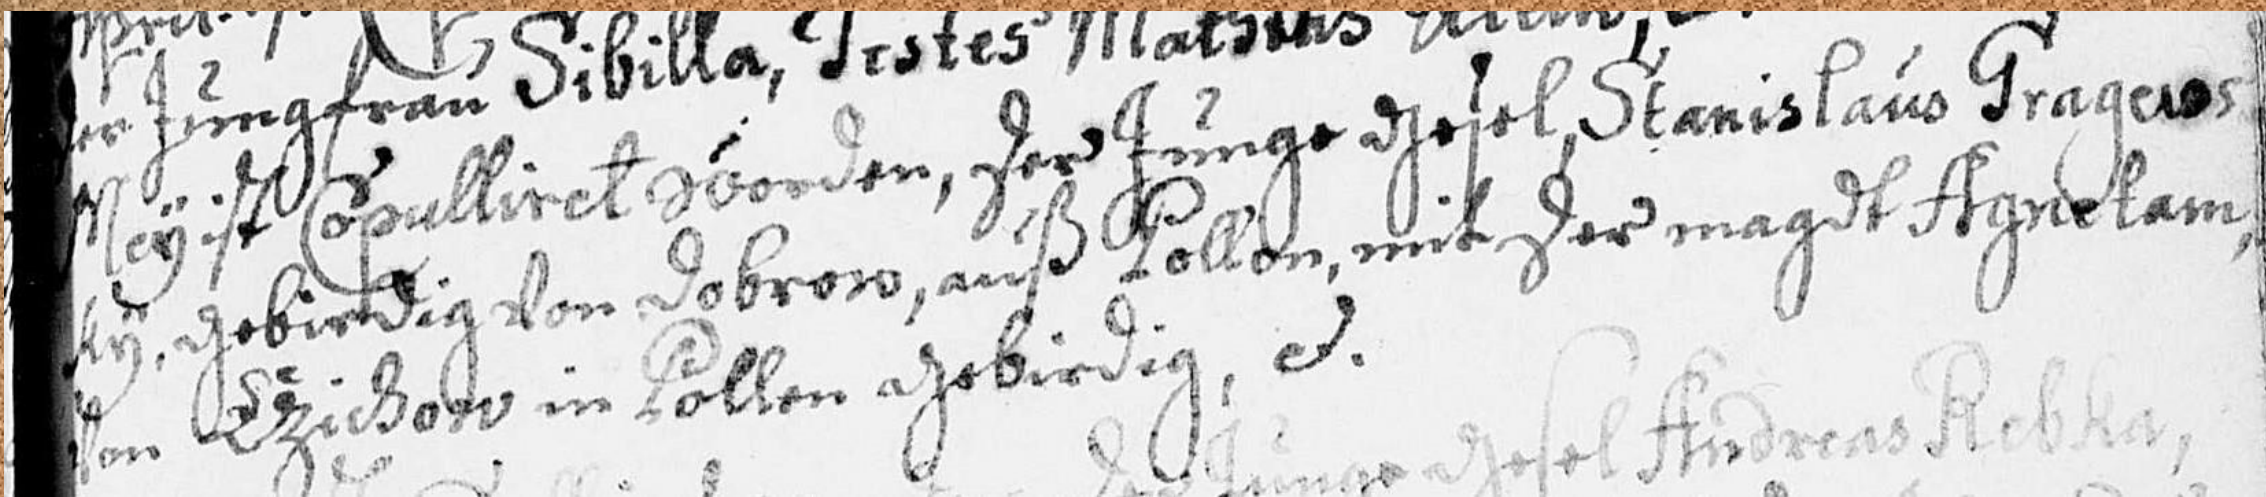 er Jungfrau Sibilla, Testes Mathias
Meÿ ist Copulliret worden, der Junge gesel, Stanislaus Tragews
kÿ, gebirdig von Dobrow, auß Pollen, mit der magdt Agnetam,
von Czichow in Pollen gebirdig, &.
der Junge gesel Andreas Rebka,